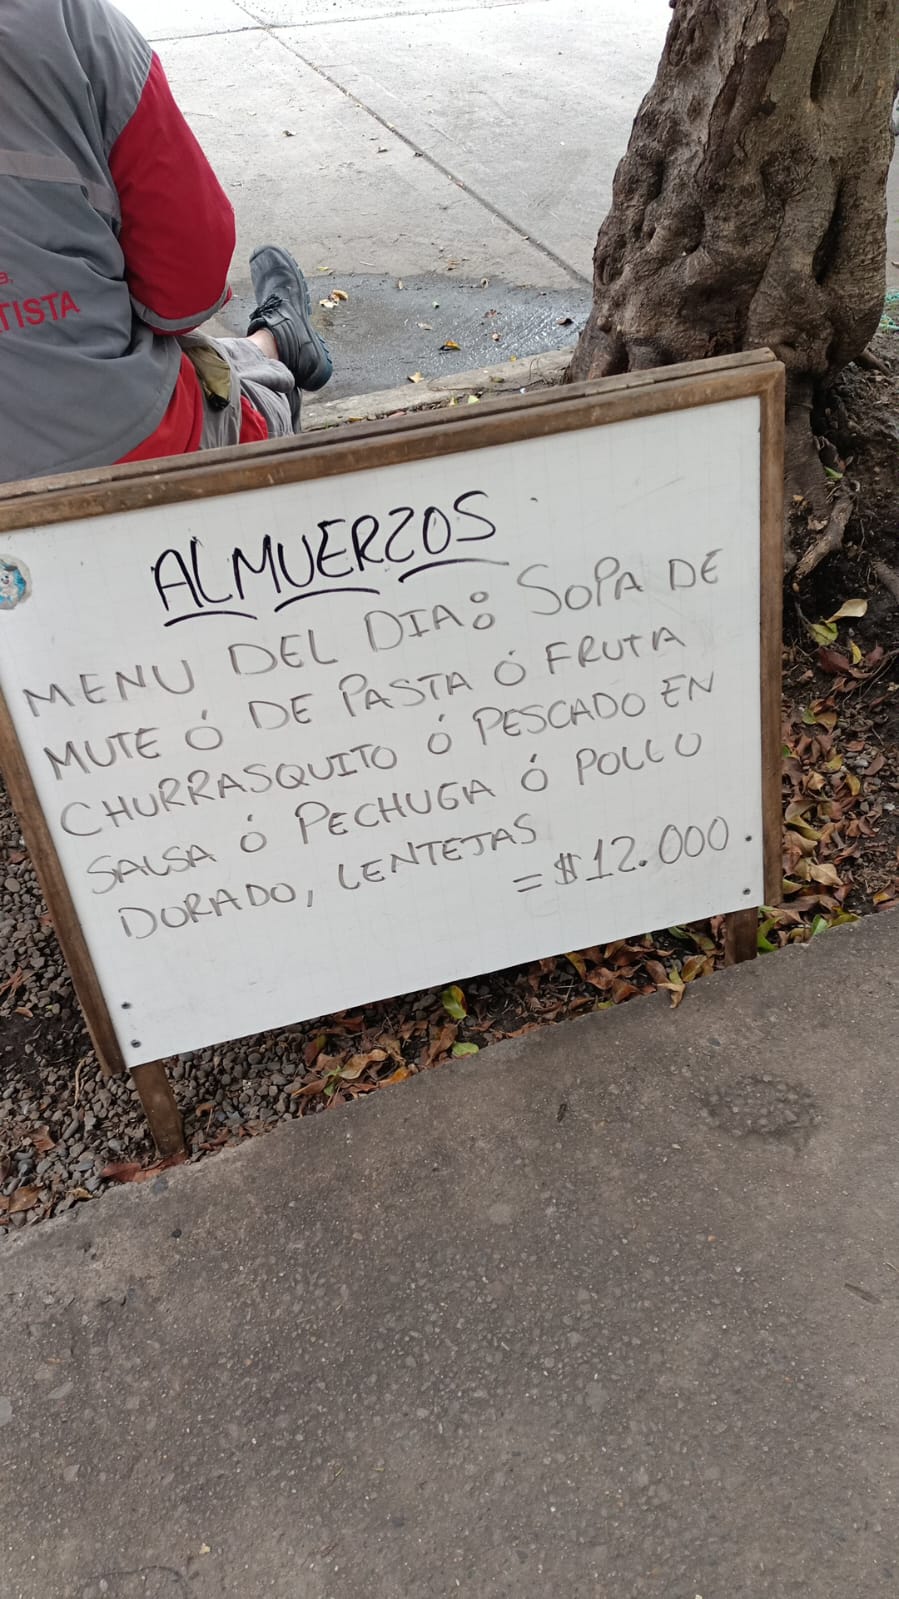 TISTA
ALMUERZOS
MENU DEL DIA: SOPA DE
MUTE Ó DE PASTA Ó FRUTA
CHURRASQUITO Ó PESCADO EN
SALSA Ó PECHUGA Ó POLLO
DORADO, LENTEJAS
= $12.000.